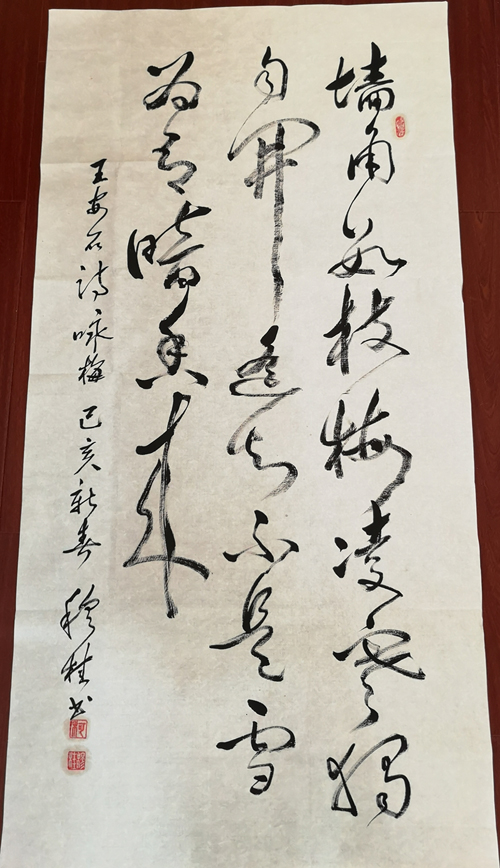 墙角数枝梅凌寒独
自开遥知不是雪
为有暗香来
王安石诗咏梅 己亥新春 穆桂书